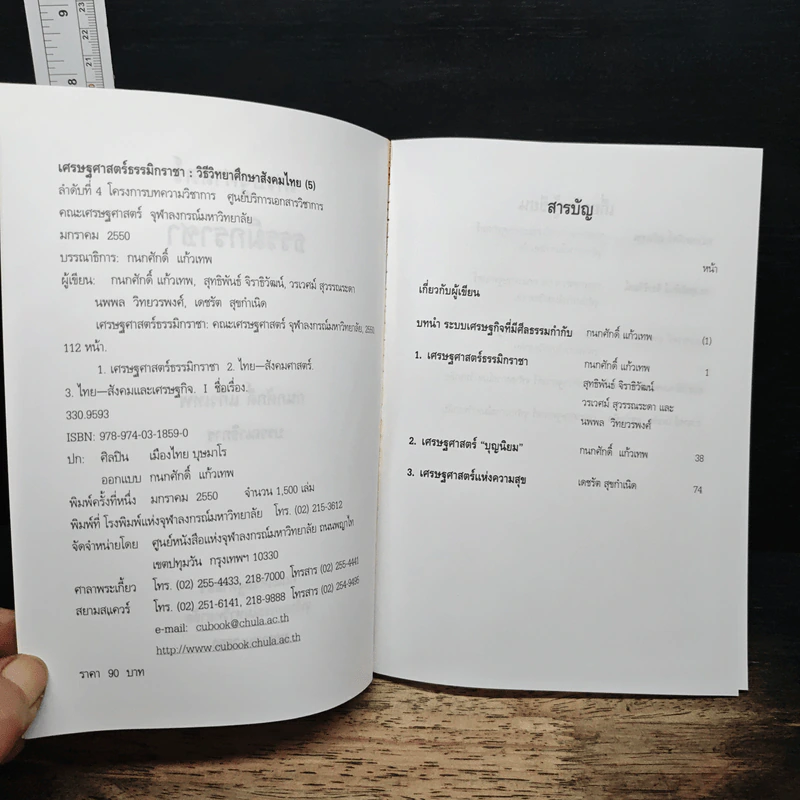 เศรษฐศาสตร์ธรรมิกราชา : วิธีวิทยาศึกษาสังคมไทย (5)
ลำดับที่ 4 โครงการบทความวิชาการ ศูนย์บริการเอกสารวิชาการ
คณะเศรษฐศาสตร์ จุฬาลงกรณ์มหาวิทยาลัย
มกราคม 2550
บรรณาธิการ: กนกศักดิ์ แก้วเทพ
ผู้เขียน: กนกศักดิ์ แก้วเทพ, สุทธิพันธ์ จิราธิวัฒน์, วรเวศม์ สุวรรณระดา
นพพล วิทยวรพงศ์, เดชรัต สุขกำเนิด
เศรษฐศาสตร์ธรรมิกราชา: คณะเศรษฐศาสตร์ จุฬาลงกรณ์มหาวิทยาลัย, 2550
112 หน้า.
1. เศรษฐศาสตร์ธรรมิกราชา 2. ไทย—สังคมศาสตร์.
3. ไทย—สังคมและเศรษฐกิจ. I ชื่อเรื่อง.
330.9593
ISBN: 978-974-03-1859-0
ปก: ศิลปิน เมืองไทย บุษมาโร
ออกแบบ กนกศักดิ์ แก้วเทพ
พิมพ์ครั้งที่หนึ่ง มกราคม 2550 จำนวน 1,500 เล่ม
พิมพ์ที่ โรงพิมพ์แห่งจุฬาลงกรณ์มหาวิทยาลัย โทร. (02) 215-3612
จัดจำหน่ายโดย ศูนย์หนังสือแห่งจุฬาลงกรณ์มหาวิทยาลัย ถนนพญาไท
เขตปทุมวัน กรุงเทพฯ 10330
ศาลาพระเกี้ยว โทร. (02) 255-4433, 218-7000 โทรสาร (02) 255-4441
สยามสแควร์ โทร. (02) 251-6141, 218-9888 โทรสาร (02) 254-9495
e-mail: cubook@chula.ac.th
http://www.cubook.chula.ac.th
ราคา 90 บาท
สารบัญ
หน้า
เกี่ยวกับผู้เขียน
บทนำ ระบบเศรษฐกิจที่มีศีลธรรมกำกับ กนกศักดิ์ แก้วเทพ (1)
1. เศรษฐศาสตร์ธรรมิกราชา กนกศักดิ์ แก้วเทพ 1
สุทธิพันธ์ จิราธิวัฒน์
วรเวศม์ สุวรรณระดา และ
นพพล วิทยวรพงศ์
2. เศรษฐศาสตร์ "บุญนิยม" กนกศักดิ์ แก้วเทพ 38
3. เศรษฐศาสตร์แห่งความสุข เดชรัต สุขกำเนิด 74
9
8
23
22
21